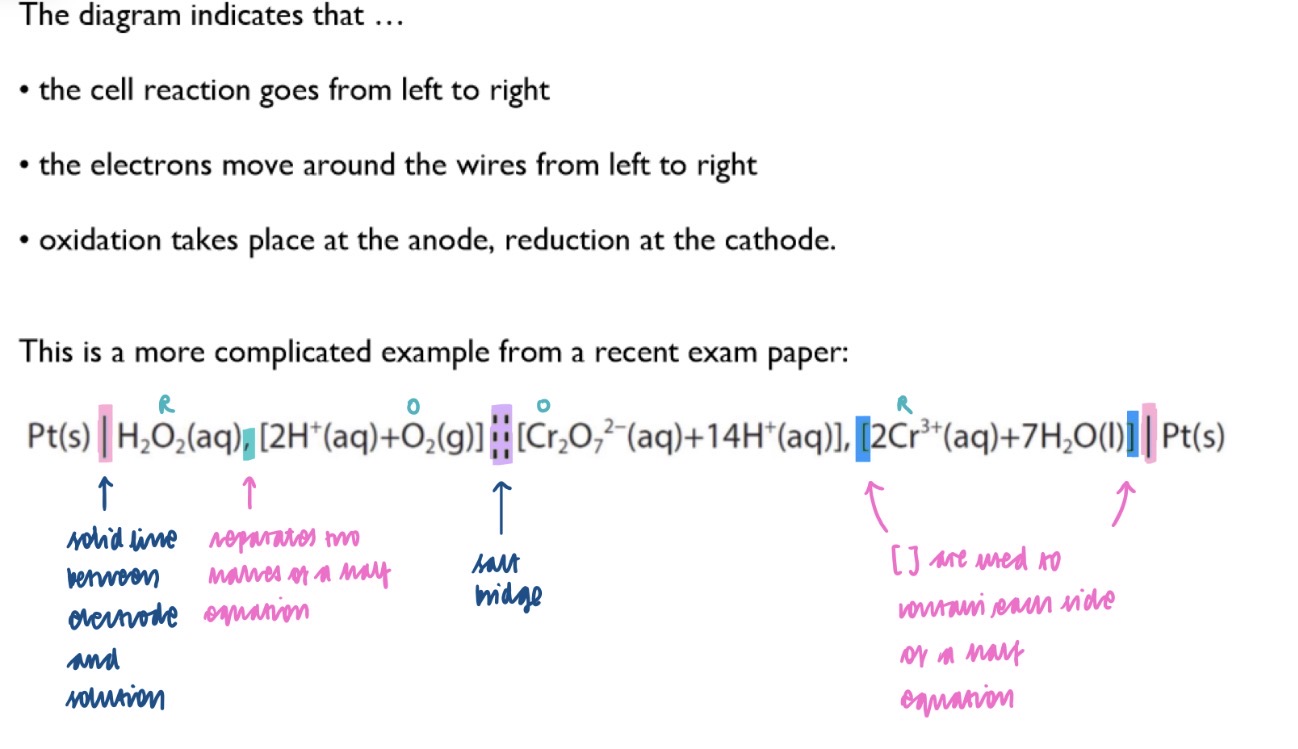 The diagram indicates that ...
• the cell reaction goes from left to right
• the electrons move around the wires from left to right
• oxidation takes place at the anode, reduction at the cathode.
This is a more complicated example from a recent exam paper:
R O O R
Pt(s) | H₂O₂(aq), [2H⁺(aq)+O₂(g)] ¦¦ [Cr₂O₇²⁻(aq)+14H⁺(aq)], [2Cr³⁺(aq)+7H₂O(l)] | Pt(s)
solid line
between
electrode
and
solution
separates two
halves of a half
equation
salt
bridge
[ ] are used to
contain each side
of a half
equation